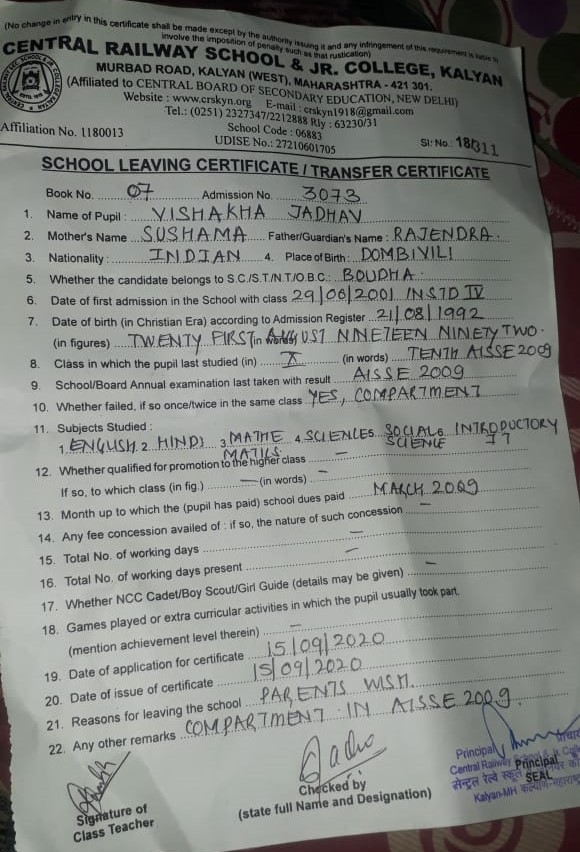 (No change in entry in this certificate shall be made except by the authority issuing it and any infringement of this requirement is liable to
involve the imposition of penalty such as that rustication)
CENTRAL RAILWAY SCHOOL & JR. COLLEGE, KALYAN
MURBAD ROAD, KALYAN (WEST), MAHARASHTRA - 421 301.
(Affiliated to CENTRAL BOARD OF SECONDARY EDUCATION, NEW DELHI)
Website : www.crskyn.org E-mail : crskyn1918@gmail.com
Tel.: (0251) 2327347/2212888 Rly : 63230/31
Affiliation No. 1180013 School Code : 06883
UDISE No.: 27210601705 Sr. No. 18/311
SCHOOL LEAVING CERTIFICATE / TRANSFER CERTIFICATE
Book No. 07 Admission No. 3073
1. Name of Pupil : VISHAKHA JADHAV
2. Mother's Name SUSHAMA Father/Guardian's Name : RAJENDRA.
3. Nationality : INDIAN 4. Place of Birth : DOMBIVILI
5. Whether the candidate belongs to S.C./S.T/N.T/O.B.C.: BOUDHA.
6. Date of first admission in the School with class 29/06/2001 IN STD IV
7. Date of birth (in Christian Era) according to Admission Register 21/08/1992
(in figures) TWENTY FIRST in words AUGUST NNETEEN NINETY TWO.
8. Class in which the pupil last studied (in) X (in words) TENTH AISSE 2009
9. School/Board Annual examination last taken with result AISSE 2009
10. Whether failed, if so once/twice in the same class YES, COMPARTMENT
11. Subjects Studied :
1. ENGLISH 2. HINDI 3. MATHE MATIKS 4. SCIENCE 5. SOCIAL SCIENCE 6. INTRODUCTORY IT
12. Whether qualified for promotion to the higher class –
If so, to which class (in fig.) – (in words) –
13. Month up to which the (pupil has paid) school dues paid MARCH 2009
14. Any fee concession availed of : if so, the nature of such concession –
15. Total No. of working days –
16. Total No. of working days present –
17. Whether NCC Cadet/Boy Scout/Girl Guide (details may be given) –
18. Games played or extra curricular activities in which the pupil usually took part.
(mention achievement level therein) –
19. Date of application for certificate 15/09/2020
20. Date of issue of certificate 15/09/2020
21. Reasons for leaving the school PARENTS WISH.
22. Any other remarks COMPARTMENT IN AISSE 2009.
Signature of
Class Teacher
Checked by
(state full Name and Designation)
Principal
Central Railway School & Jr. College
Principal
SEAL
Kalyan-MH